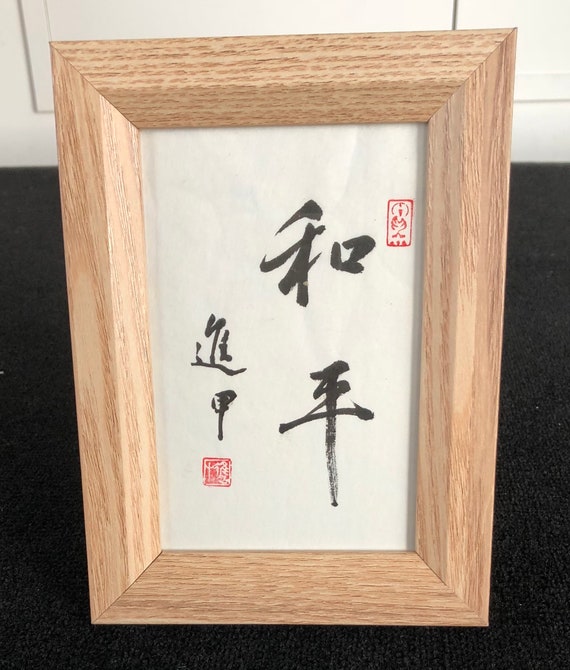 和平
進甲